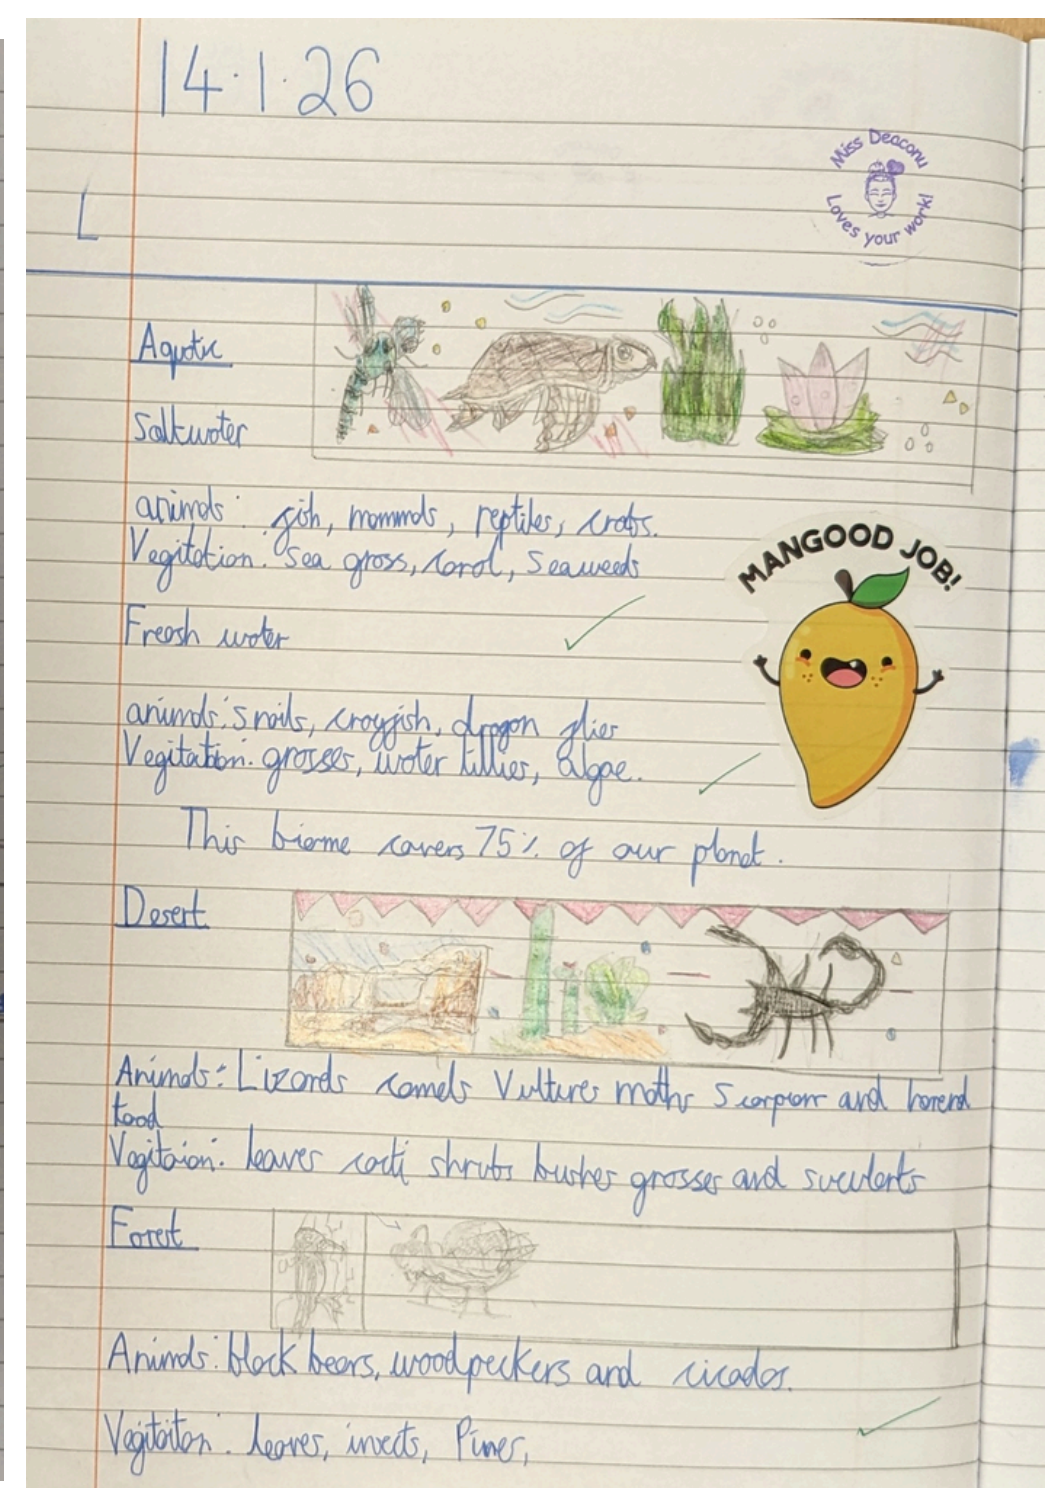 14.1.26
Miss Deaconu
Loves your work!
L
Aquatic
Saltwater
animals: fish, mammals, reptiles, crabs.
Vegitation: sea grass, coral, seaweeds
MANGOOD JOB!
Freash water
animals: snails, crayfish, dragon flies
Vegitation: grasses, water lillies, algae.
This biome covers 75% of our planet.
Desert
Animals: Lizards camels Vultures moths Scorpions and horend
toad
Vegitaion: leaves cacti shrubs bushes grasses and succulents
Forest
Animals: black bears, woodpeckers and cicadas.
Vegitaiton: leaves, insects, Pines,